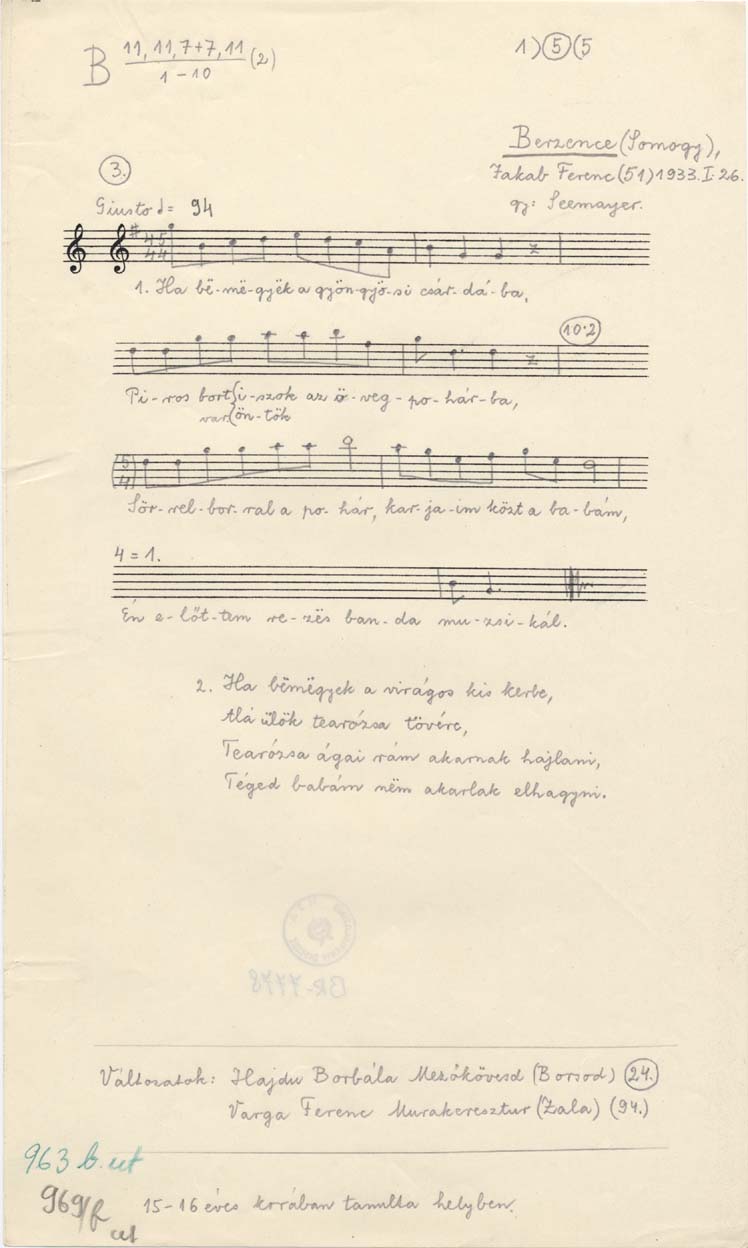 B 11, 11, 7+7, 11 (2)
1 – 10
1) 5 (5
Berzence (Somogy),
Jakab Ferenc (51) 1933. I. 26.
gy: Seemayer.
3.
Giusto = 94
4 5
4 4
1. Ha bë-më-gyëk a gyön-gyö-si csár-dá-ba,
10·2
Pi-ros bort i-szok az ö-veg-po-hár-ba,
var ön-tök
5
4
Sör-rel-bor-ral a po-hár, kar-ja-im közt a ba-bám,
4 = 1.
Én e-lőt-tem re-zës ban-da mu-zsi-kál.
2. Ha bëmëgyek a virágos kis kerbe,
Alá ülök tearózsa tövére,
Tearózsa ágai rám akarnak hajlani,
Téged babám nëm akarlak elhagyni.
BR-7778
Változatok: Hajdu Borbála Mezőkövesd (Borsod) 24.
Varga Ferenc Murakeresztur (Zala) (94.)
963 b. ut
969/f
ut
15–16 éves korában tanulta helyben.